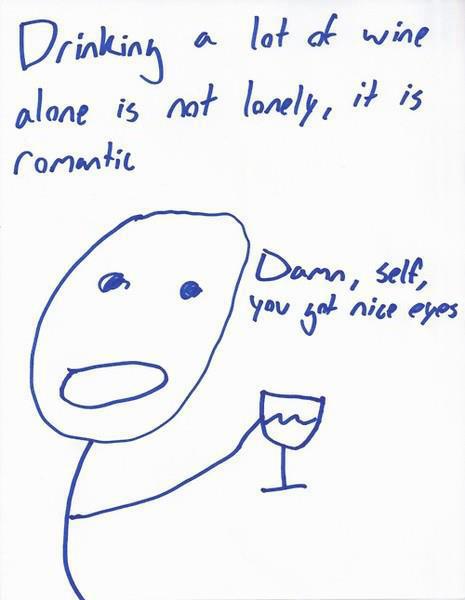 Drinking a lot of wine
alone is not lonely, it is
romantic
Damn, self,
you got nice eyes